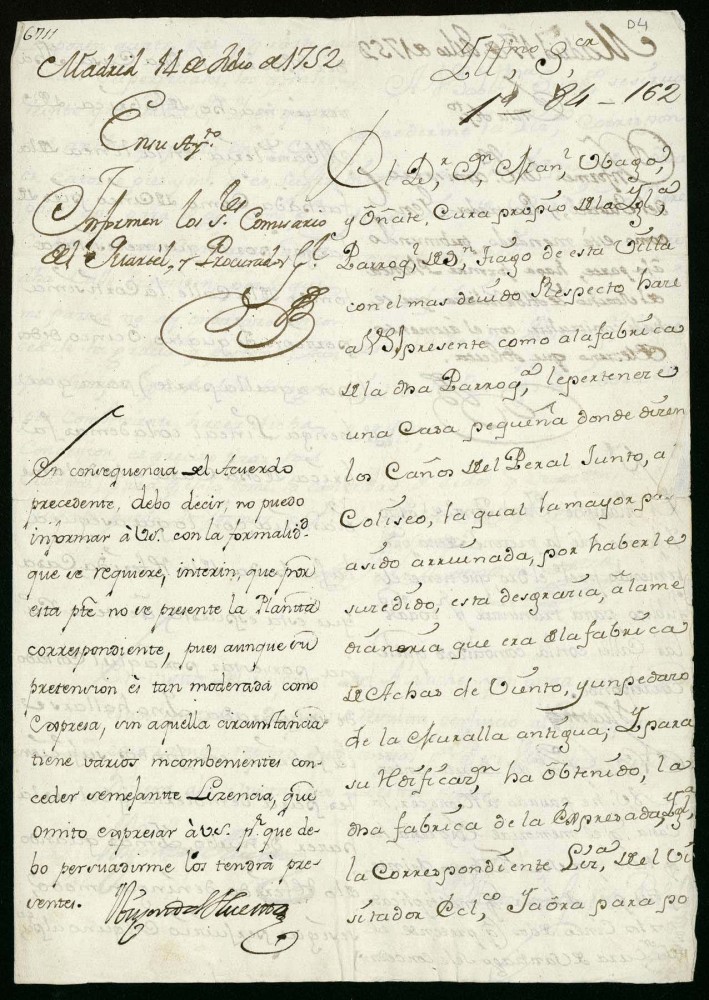 6711
D4
Madrid 14 de Julio de 1752
Yll.mo S.or
1ª 84-162
En su Ay.to
Informen los S.res Comisario
del Quartél, y Procurador G.l
En consequencia del Acuerdo
precedente, debo decir, no puedo
informar à VS. con la formalid.d
que se requiere, interin, que por
esta pte no se presente la Plantta
correspondiente, pues aunque su
pretension ès tan moderada como
Expresa, sin aquélla circunstancia
tiene varios incombenientes con-
ceder semejantte Lizencia, que
omito expresar à VS. p.r que de-
bo persuadirme los tendrà pre-
sentes.
El D.r D.n Man.l Ubago,
y Oñate, Cura propio de la Ygl.a
Parroq.l de S.n Tiago de esta Villa
con el mas devido Respecto hace
a VSI presente como a la fabrica
de la dha Parroq.a le pertenece
una Casa pequeña donde dizen
los Caños del Peral Junto, a
Coliseo, la qual la mayor p.e
a sido arruinada, por haberle
suzedido, esta desgrazia, à la me
dianeria que era de la fabrica
de Achas de Viento, y un pedazo
de la Muralla antigua; Y para
su Hdificaz.on ha obtenido, la
dha fabrica de la Expresada Ygl.a
la Correspondiente Liz.a del Vi
sitador Ecl.co Y aora para po